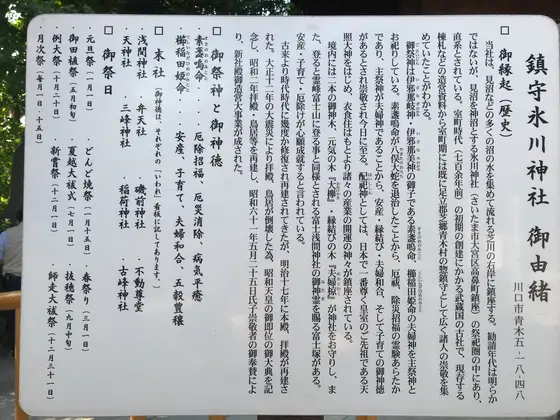 鎮守氷川神社 御由緒
川口市青木五-一八-四八
□ 御縁起（歴史）
当社は、見沼などの多くの沼の水を集めて流れる芝川の右岸に鎮座する。勧請年代は明らか
ではないが、見沼を神沼とする氷川神社（さいたま市大宮区高鼻町鎮座）の祭祀圏の中にあり、
直系とされている。室町時代（七百余年前）の初期の創建にかかる武蔵国の古社で、現存する
棟札などの造営資料から室町期には既に足立郡谷郷青木村の惣鎮守として広く諸人の崇敬を集
めていたことがわかる。
御祭神は伊邪那岐命・伊邪那美命の御子である素盞鳴命、櫛稲田姫命の夫婦神を主祭神と
お祀りしている。素盞鳴命が八俣大蛇を退治したことから、厄祓、除災招福の霊験あらたか
であり、主祭神が夫婦神であることから、安産・縁結び・夫婦和合、そして子育ての御神徳
があるとされ崇敬され今日に至る。配祀神としては、日本で一番尊く皇室のご先祖である天
照大神をはじめ、衣食住はもとより諸々の産業の開運の神々が鎮座されている。
境内には二本の御神木、元気の木『大欅』、縁結びの木『夫婦椋』が神社をお守りし、ま
た、登ると霊峰富士山に登る事と同様とされる富士浅間神社の御神霊を賜る富士塚がある。
安産・子育て・厄除けが心願成就すると言われている。
古来より時代時代に幾度か修復され再建されてきたが、明治十七年に本殿、拝殿が再建さ
れた。大正十二年の大震災により拝殿、鳥居が倒壊した為、昭和天皇の御即位の御大典を記
念し、昭和二年拝殿、鳥居等を再建し、昭和六十一年五月二十五日氏子崇敬者の御奉賛によ
り、新社殿御造営大事業が成された。
□ 御祭神と御神徳
素盞鳴命 ・ 厄除招福、厄災消除、病気平癒
櫛稲田姫命 ・ 安産、子育て、夫婦和合、五穀豊穣
□ 末社（御神徳は、それぞれの「いわれ」看板に記してあります）
浅間神社 弁天社 磯前神社 不動尊堂
天神社 三峰神社 稲荷神社 古峰神社
□ 御祭日
・元旦祭（一月一日） ・どんど焼祭（一月十五日） ・春祭り（三月一日）
・御田植祭（五月初旬） ・夏越大祓式（七月一日） ・抜穂祭（九月中旬）
・例大祭（十月二十日） ・新嘗祭（十二月一日） ・師走大祓祭（十二月三十一日）
・月次祭（毎月一日、十五日）